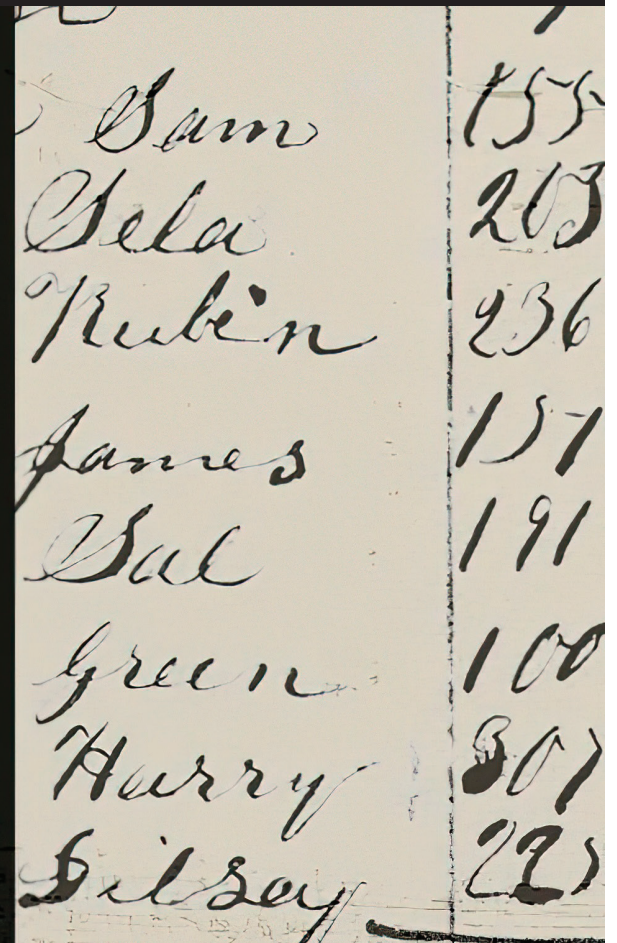 Sam 155
Sela 203
Rubin 236
James 151
Sal 191
Green 100
Harry 307
Silsay